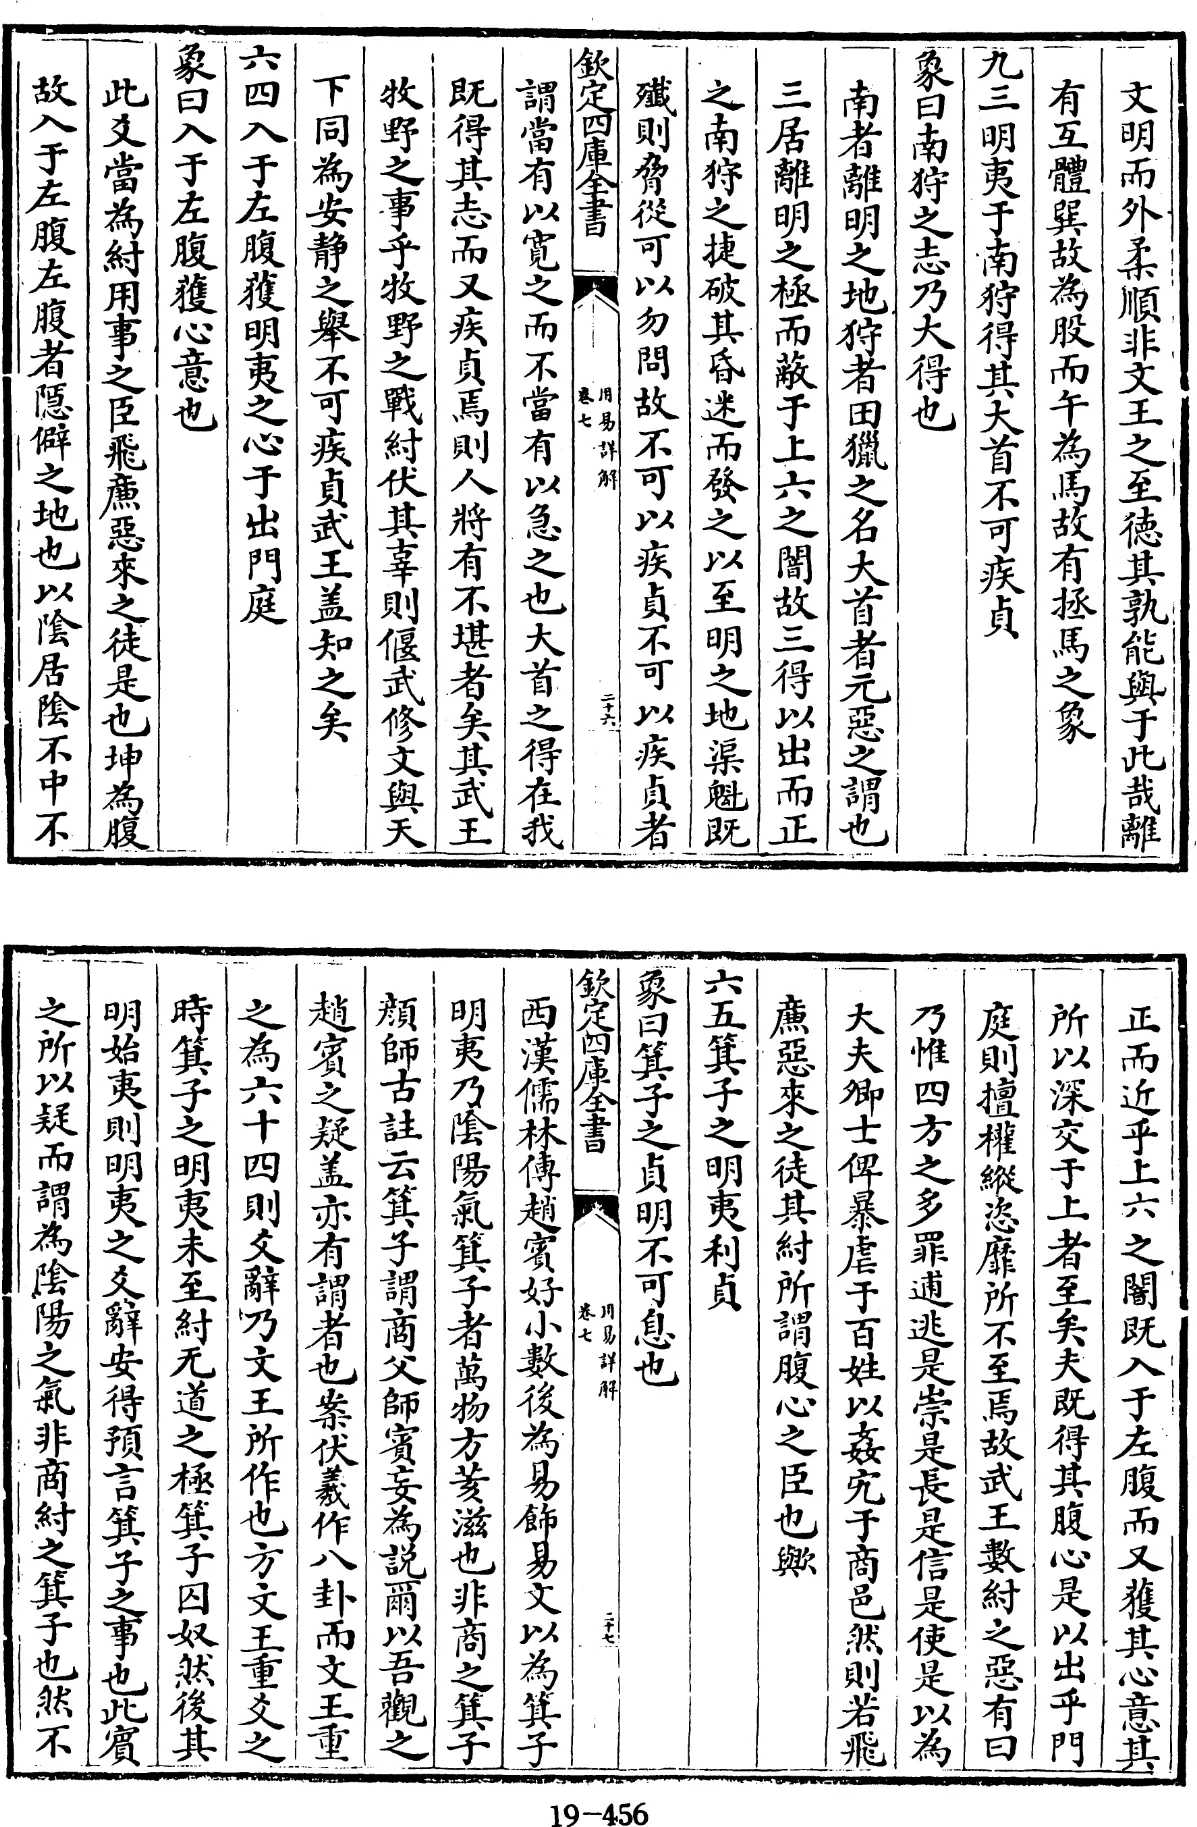 文明而外柔順非文王之至徳其孰能與于此哉離
有互體巽故為股而午為馬故有拯馬之象
九三明夷于南狩得其大首不可疾貞
象曰南狩之志乃大得也
南者離明之地狩者田獵之名大首者元惡之謂也
三居離明之極而蔽于上六之闇故三得以出而正
之南狩之捷破其昏迷而發之以至明之地渠魁既
殱則脅從可以勿問故不可以疾貞不可以疾貞者
欽定四庫全書
周易詳解
卷七
二十六
謂當有以寛之而不當有以急之也大首之得在我
既得其志而又疾貞焉則人將有不堪者矣其武王
牧野之事乎牧野之戰紂伏其辜則偃武修文與天
下同為安靜之舉不可疾貞武王盖知之矣
六四入于左腹獲明夷之心于出門庭
象曰入于左腹獲心意也
此爻當為紂用事之臣飛㢘惡來之徒是也坤為腹
故入于左腹左腹者隠僻之地也以陰居陰不中不
正而近乎上六之闇既入于左腹而又獲其心意其
所以深交于上者至矣夫既得其腹心是以出乎門
庭則擅權縱恣靡所不至焉故武王數紂之惡有曰
乃惟四方之多罪逋逃是崇是長是信是使是以為
大夫卿士俾暴虐于百姓以姦宄于商邑然則若飛
㢘惡來之徒其紂所謂腹心之臣也歟
六五箕子之明夷利貞
象曰箕子之貞明不可息也
欽定四庫全書
周易詳解
卷七
二十七
西漢儒林傳趙賓好小數後為易飾易文以為箕子
明夷乃陰陽氣箕子者萬物方荄滋也非商之箕子
顔師古註云箕子謂商父師賓妄為說爾以吾觀之
趙賓之疑盖亦有謂者也案伏羲作八卦而文王重
之為六十四則爻辭乃文王所作也方文王重爻之
時箕子之明夷未至紂无道之極箕子囚奴然後其
明始夷則明夷之爻辭安得預言箕子之事也此賓
之所以疑而謂為陰陽之氣非商紂之箕子也然不
19-456